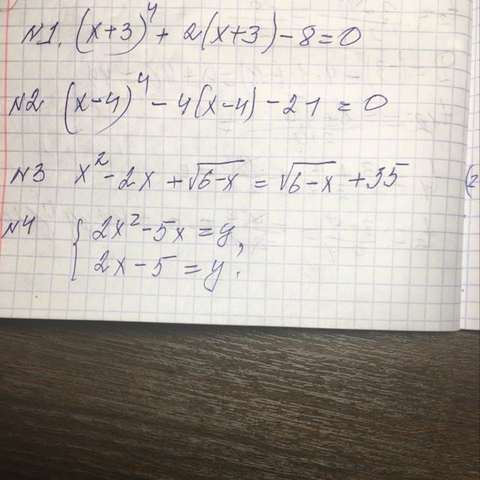 №1. (x+3)⁴ + 2(x+3) - 8 = 0
№2 (x-4)⁴ - 4(x-4) - 21 = 0
№3 x² - 2x + √(6-x) = √(6-x) + 35
№4 { 2x² - 5x = y,
2x - 5 = y.